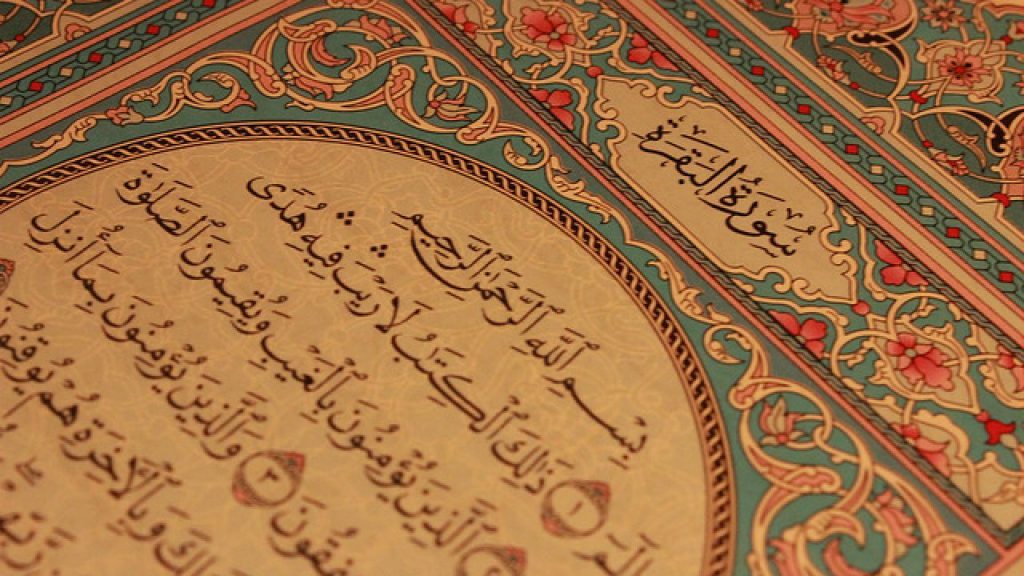 سُورَةُ الْبَقَرَةِ
بِسْمِ ٱللَّهِ ٱلرَّحْمَٰنِ ٱلرَّحِيمِ
الٓمٓ ١ ذَٰلِكَ ٱلْكِتَٰبُ لَا رَيْبَ ۛ فِيهِ ۛ هُدًى
ٱلَّذِينَ يُؤْمِنُونَ بِٱلْغَيْبِ وَيُقِيمُونَ ٱلصَّلَوٰةَ
٣ وَٱلَّذِينَ يُؤْمِنُونَ بِمَآ أُنزِلَ
وَبِٱلْءَاخِرَةِ هُمْ